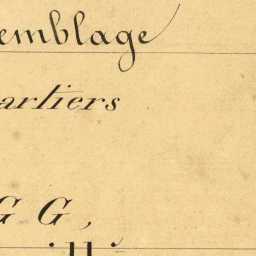 emblage
artiers
G G,